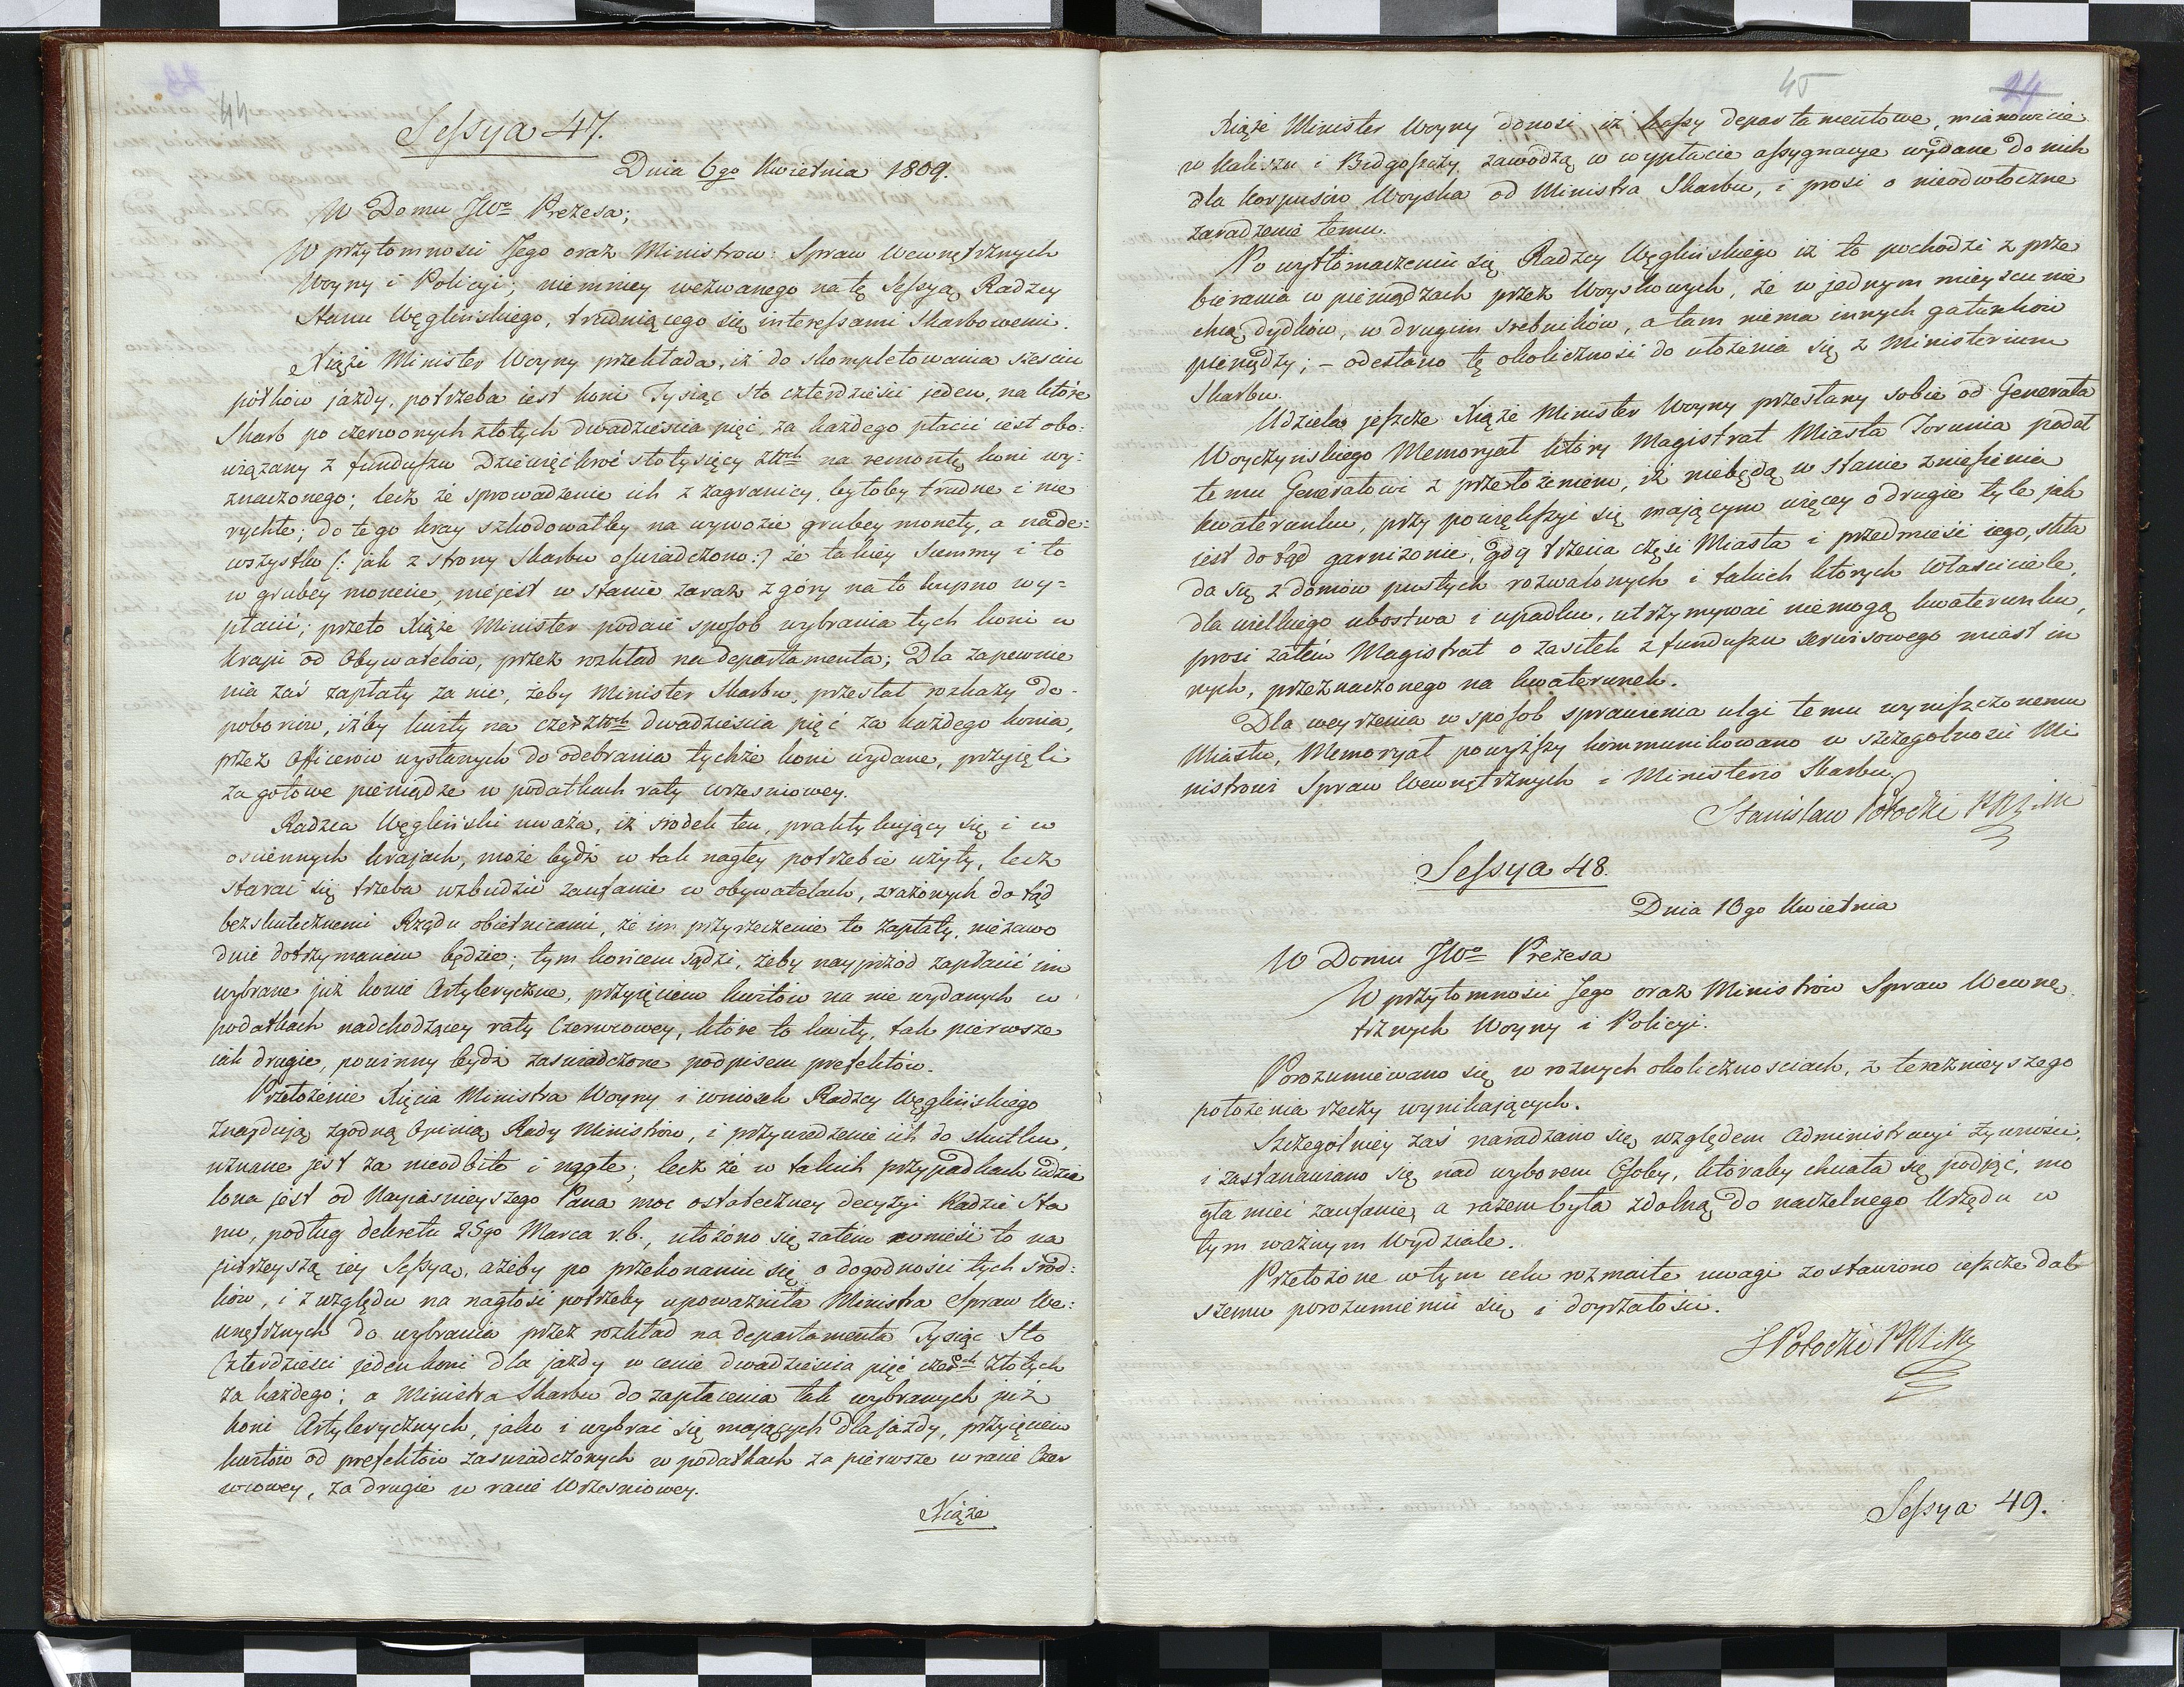 44
Sessya 47.
Dnia 6go Kwietnia 1809.
W Domu JWo Prezesa;
W przytomnosci Jego oraz Ministrow: Spraw Wewnętrznych
Woyny i Policyi; niemniey wezwanego na tę Sessyą Radzcy
Stanu Węglińskiego, trudniącego się interessami Skarbowemi.
Xiąże Minister Woyny przekłada, iż do skompletowania szesciu
półków jazdy, potrzeba iest koni Tysiąc sto czterdzieści jeden, na które
Skarb po czerwonych złotych dwadzieścia pięć, za każdego płacić iest obo-
wiązany z funduszu Dziewięćkroć stotysięcy Złtych na remontę koni wy-
znaczonego; lecz że sprowadzenie ich z zagranicy, byłoby trudne i nie
rychłe; do tego kray szkodowałby na wywozie grubey monety, a nade-
wszystko (: jak z strony Skarbu oswiadczono:) że takiey Summy i to
w grubey monecie, niejest w stanie zaraz z góry na to kupno wy=
płacić; przeto Xiąże Minister podaie sposob wybrania tych koni w
kraju od Obywatelow, przez rozkład na departamenta; Dla zapewnie
nia zaś zapłaty za nie, żeby Minister Skarbu, przesłał rozkazy do-
poborców, iżby kwity na czerZłtych dwadzieścia pięć za każdego konia,
przez Officerów wysłanych do odebrania tychże koni wydane, przyięli
za gotowe pieniądze w podatkach raty wrzesniowey.
Radzca Węgliński uważa, iż srodek ten, praktykujący się i w
osciennych krajach, może bydź w tak nagłey potrzebie użyty, lecz
starać się trzeba wzbudzić zaufanie w obywatelach, zrażonych do tąd
bezskutecznemi Rządu obietnicami, że im przyrzeczenie to zapłaty, niezawo
dnie dotrzymanem będzie; tym końcem sądzi, żeby nayprzód zapłacić im
wybrane już konie Artyleryczne, przyięciem kwitów na nie wydanych w
podatkach nadchodzącey raty Czerwcowey, które to kwity, tak pierwsze
iak drugie, powinny bydź zaswiadczone podpisem prefektów.
Przełożenie Xięcia Ministra Woyny i wniosek Radzcy Węglińskiego
znayduią zgodną Opinią Rady Ministrów, i przywiedzenie ich do skutku,
uznane jest za nieodbite i nagłe; lecz że w takich przypadkach udzie
lona jest od Nayiasnieyszego Pana moc ostateczney decyzyi Radzie Sta
nu, podług dekretu 25go Marca r.b., ułożono się zatem wnieść to na
jutrzeyszą iey Sessyą, ażeby po przekonaniu się o dogodnosci tych srod-
ków, i z względu na nagłość potrzeby upoważniła Ministra Spraw We-
wnętrznych do wybrania przez rozkład na departamenta Tysiąc Sto
Czterdzieści jeden koni dla jazdy w cenie dwadzieścia pięć czerwch złotych
za każdego; a Ministra Skarbu do zapłacenia tak wybranych już
koni Artylerycznych, jako i wybrać się mających dla jazdy, przyięciem
kwitów od prefektów zaswiadczonych w podatkach za pierwsze w racie Czer
wcowey, za drugie w racie Wrzesniowey.
Xiąże
45
24
Xiąże Minister Woyny donosi iż kassy departamentowe, mianowicie
w Kaliszu i Bidgoszczy, zawodzą w wypłacie assygnacye wydane do nich
dla korpusów Woyska od Ministra Skarbu, i prosi o nieodwłoczne
zaradzenie temu.
Po wytłómaczeniu się Radzcy Węglińskiego iż to pochodzi z prze
bierania w pieniądzach przez Woyskowych, że w jednym mieyscu nie
chcą dydków, w drugim srebników, a tam niema innych gatunków
pieniędzy; – odesłano tę okoliczność do ułożenia się z Ministerium
Skarbu.
Udziela jeszcze Xiąże Minister Woyny przesłany sobie od Generała
Woyczyńskiego Memoryał który Magistrat Miasta Torunia podał
temu Generałowi z przełożeniem, iż niebędą w stanie zniesienia
kwaterunku, przy powiększyć się mającym więcey o drugie tyle jak
iest dotąd garnizonie, gdy trzecia część Miasta i przedmieść iego, skła
da się z domów pustych rozwalonych i takich których własciciele,
dla wielkiego ubostwa i upadku, utrzymywać niemogą kwaterunku,
prosi zatem Magistrat o zasiłek z funduszu serwisowego miast in
nych, przeznaczonego na kwaterunek.
Dla weyrzenia w sposob sprawienia ulgi temu wyniszczonemu
Miastu, Memoryał powyższy kommunikowano w szczegolnosci Mi
nistrowi Spraw Wewnętrznych i Ministerio Skarbu.
Stanisław Potocki
Sessya 48.
Dnia 10go Kwietnia
W Domu JWo Prezesa
W przytomności Jego oraz Ministrów Spraw Wewnę
trznych Woyny i Policyi.
Porozumiewano się w rożnych okolicznosciach, z teraznieyszego
położenia rzeczy wynikających.
Szczegolniey zaś naradzano się względem Administracyi żywności,
i zastanawiano się nad wyborem Osoby, któraby chciała się podjąć, mo
gła mieć zaufanie, a razem była zdolną do naczelnego Urzędu w
tym ważnym Wydziale.
Przełożone w tym celu rozmaite uwagi zostawiono ieszcze dal
szemu porozumieniu się i doyrzałości.
SPotocki
Sessya 49.